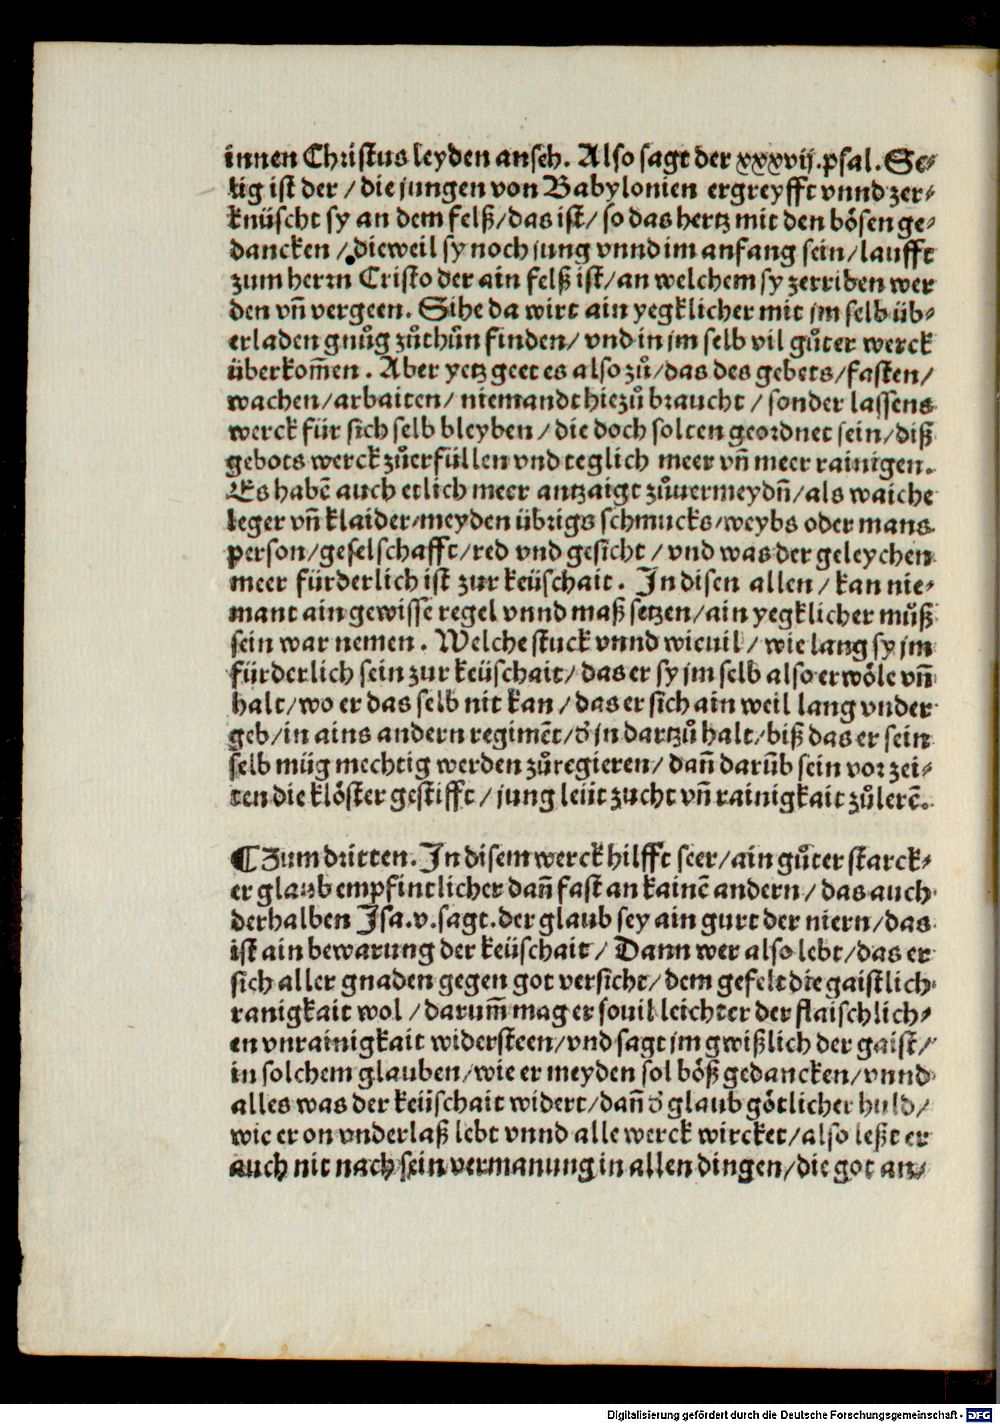 innen Christus leyden anseh. Also sagt der xxxvij.psal. Se⸗
lig ist der / die jungen von Babylonien ergreyfft vnnd zer⸗
knüscht sy an dem felß/das ist/ so das hertz mit den bösen ge⸗
dancken / dieweil sy noch jung vnnd im anfang sein/laufft
zum herrn Cristo der ain felß ist/an welchem sy zerriben wer
den vñ vergeen. Sihe da wirt ain yegklicher mit jm selb üb⸗
erladen gnůg zůthůn finden/ vnd in jm selb vil gůter werck
überkom̃en . Aber yetz geet es also zů/das des gebets/fasten/
wachen/arbaiten/ niemandt hiezů braucht / sonder lassens
werck für sich selb bleyben / die doch solten geordnet sein/diß
gebots werck zůerfüllen vnd teglich meer vñ meer rainigen.
Es habẽ auch etlich meer antzaigt zůuermeydñ/als waiche
leger vñ klaider/meyden übrigs schmucks/weybs oder mans
person/geselschafft/red vnd gesicht / vnd was der geleychen
meer fürderlich ist zur keüschait . In disen allen / kan nie⸗
mant ain gewisse regel vnnd maß setzen/ain yegklicher můß
sein war nemen . Welche stuck vnnd wieuil / wie lang sy jm
fürderlich sein zur keüschait/ das er sy jm selb also erwöle vñ
halt/wo er das selb nit kan / das er sich ain weil lang vnder
geb/in ains andern regimẽt/d̾ jn dartzů halt/biß das er sein
selb müg mechtig werden zůregieren/ dañ darũb sein vor zei⸗
ten die klöster gestifft / jung leüt zucht vñ rainigkait zůlerẽ.

¶ Zum dritten. In disem werck hilfft seer/ain gůter starck⸗
er glaub empfintlicher dañ fast an kainẽ andern / das auch
derhalben Isa.v.sagt.der glaub sey ain gurt der niern/das
ist ain bewarung der keüschait / Dann wer also lebt/das er
sich aller gnaden gegen got versicht/dem gefelt die gaistlich
ranigkait wol / darum̃ mag er souil leichter der flaischlich⸗
en vnrainigkait widersteen/vnd sagt jm gwißlich der gaist/
in solchem glauben/wie er meyden sol böß gedancken/vnnd
alles was der keüschait widert/dañ d̾ glaub götlicher huld/
wie er on vnderlaß lebt vnnd alle werck wircket/also leßt er
auch nit nach sein vermanung in allen dingen/die got an⸗

Digitalisierung gefördert durch die Deutsche Forschungsgemeinschaft - DFG